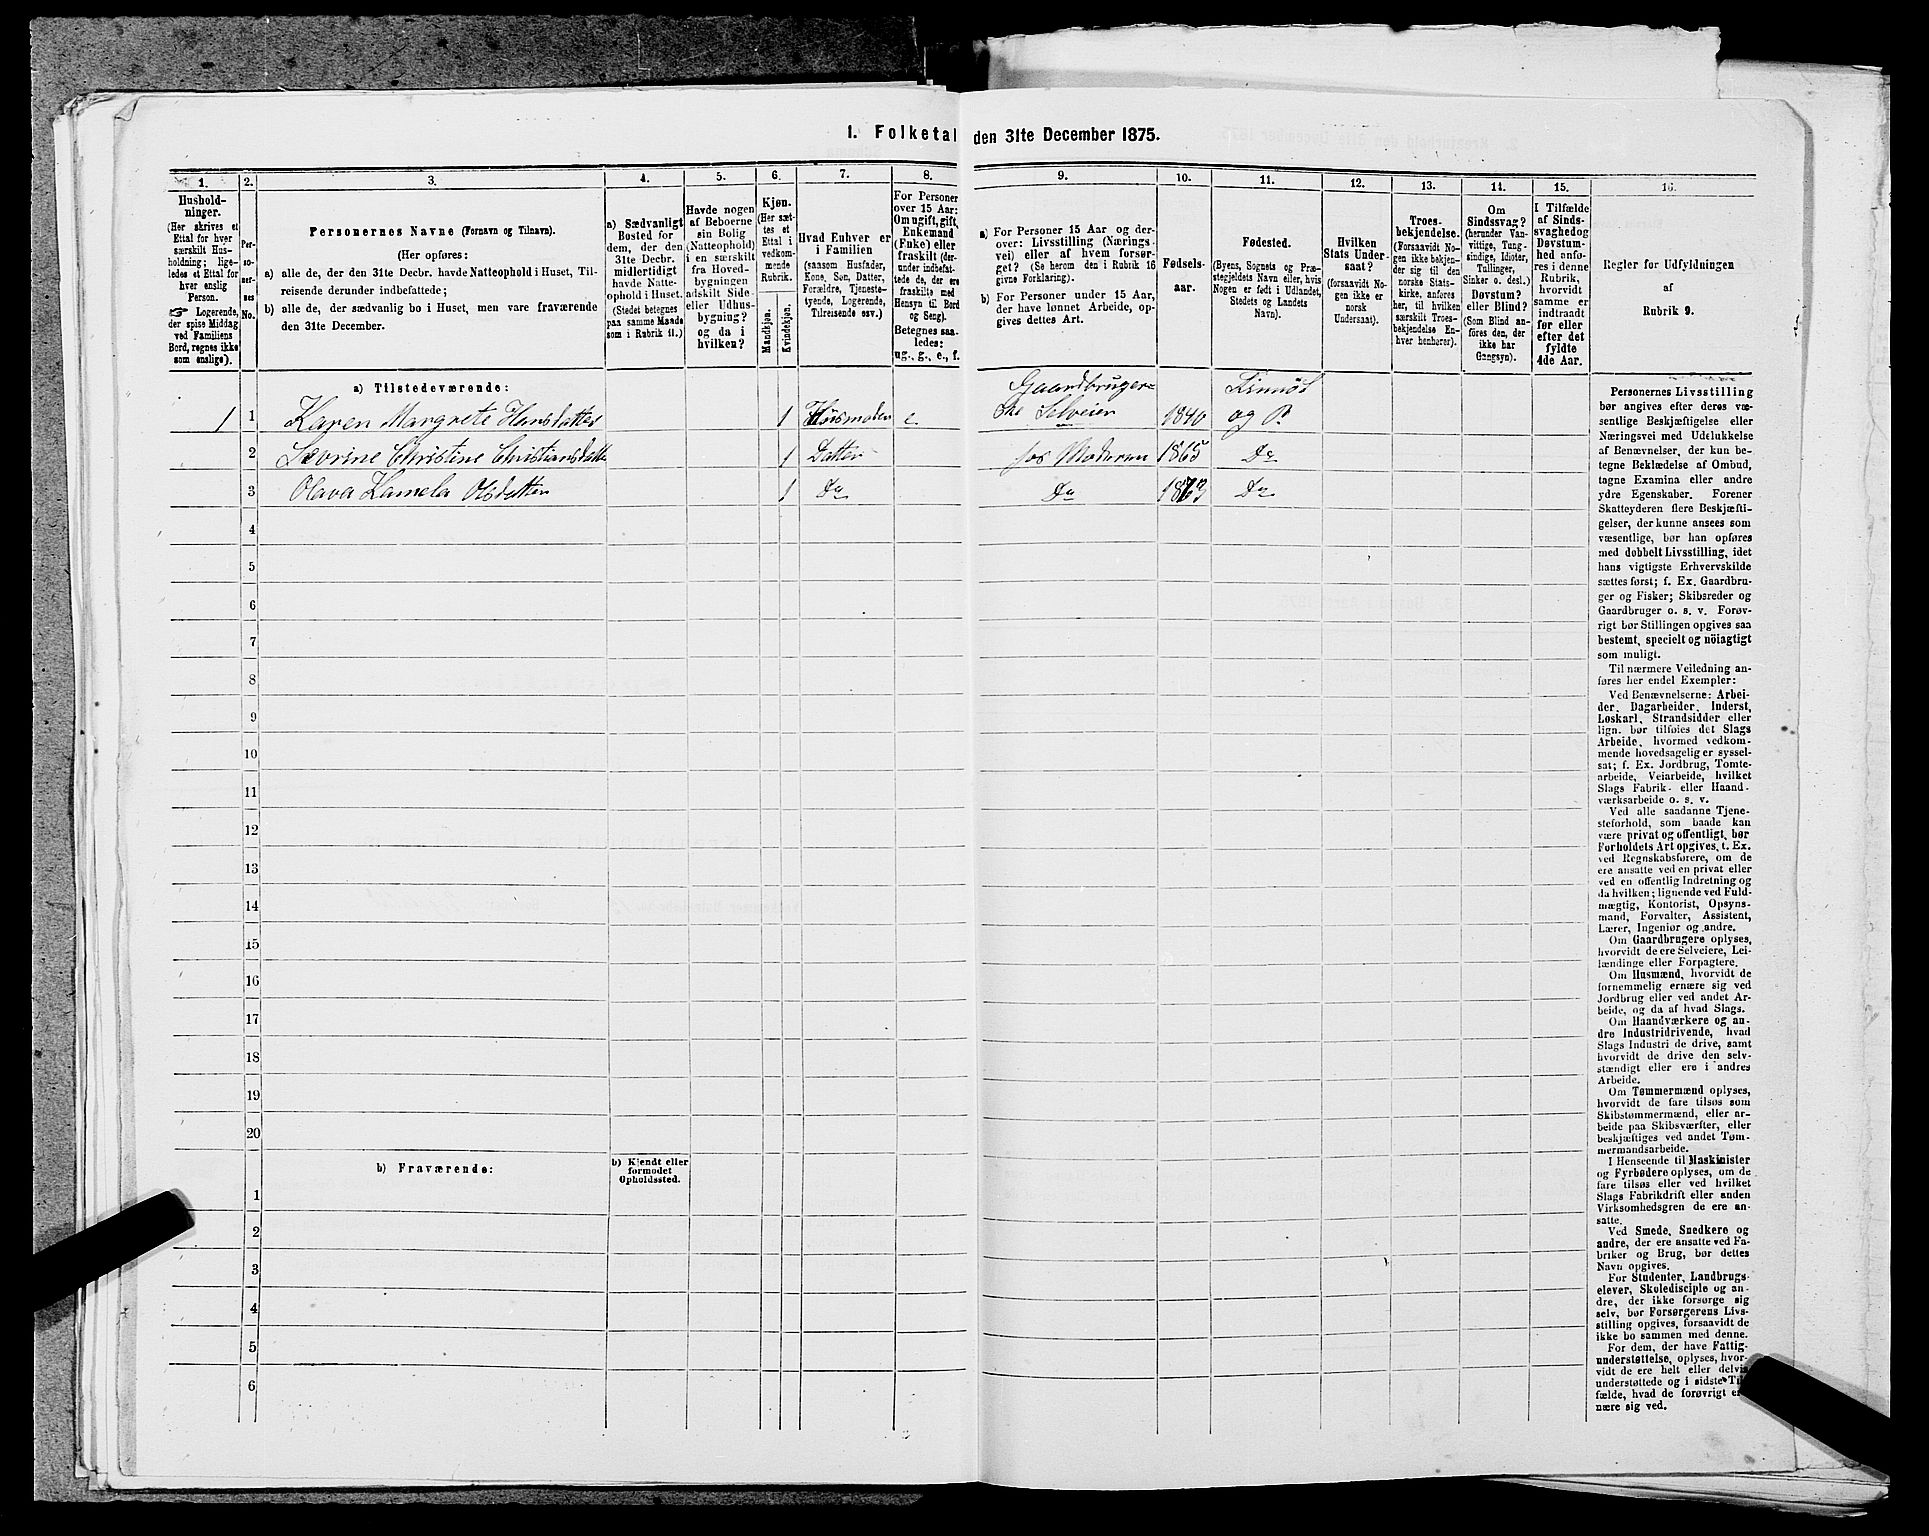 1. Folketal den 31te December 1875.
1.
2.
3.
4.
5.
6.
7.
8.
9.
10.
11.
12.
13.
14.
15.
16.
Hushold-
ninger.
(Her skrives et
Ettal for hver
særskilt Hus-
holdning; lige-
ledes et Ettal for
hver enslig
Person.
☞ Logerende,
der spise Middag
ved Familiens
Bord, regnes ikke
som enslige).
Per-
so-
ner-
nes
No.
Personernes Navne (Fornavn og Tilnavn).
(Her opføres:
a) alle de, der den 31te Decbr. havde Natteophold i Huset, Til-
reisende derunder indbefattede;
b) alle de, der sædvanlig bo i Huset, men vare fraværende
den 31te December.
a) Sædvanligt
Bosted for
dem, der den
31te Decbr.
midlertidigt
havde Natte-
ophold i Huset.
(Stedet betegnes
paa samme Maade
som i Rubrik 11.)
Havde nogen
af Beboerne
sin Bolig
(Natteophold)
i en særskilt
fra Hoved-
bygningen
adskilt Side-
eller Udhus-
bygning?
og da i
hvilken?
Kjøn.
(Her sæt-
tes et
Ettal i
vedkom-
mende
Rubrik.
Mandkjøn.
Kvindekjøn.
Hvad Enhver er
i Familien
(saasom Husfader,
Kone, Søn, Datter,
Forældre, Tjeneste-
tyende, Logerende,
Tilreisende osv.)
For Personer
over 15 Aar:
Om ugift, gift,
Enkemand
(Enke) eller
fraskilt (der-
under indbefat-
tede de, der ere
fraskilte med
Hensyn til Bord
og Seng).
Betegnes saa-
ledes:
ug., g., e., f.
a) For Personer 15 Aar og der-
over: Livsstilling (Nærings-
vei) eller af hvem forsør-
get? (Se herom den i Rubrik 16
givne Forklaring).
b) For Personer under 15 Aar,
der have lønnet Arbeide, op-
gives dettes Art.
Fødsels-
aar.
Fødested.
(Byens, Sognets og Præ-
stegjeldets Navn eller, hvis
Nogen er født i Udlandet,
Stedets og Landets
Navn).
Hvilken
Stats Under-
saat?
(forsaavidt No-
gen ikke er
norsk
Undersaat).
Troes-
bekjendelse.
(Forsaavidt No-
gen ikke bekjen-
der sig til den
norske Stats-
kirke, anføres
her, til hvilken
særskilt Troes-
bekjendelse En-
hver henhører).
Om
Sindssvag?
(herunder Van-
vittige, Tung-
sindige, Idioter,
Tullinger,
Sinker o. desl.)
Døvstum?
eller Blind?
(Som Blind an-
føres den, der
ikke har
Gangsyn).
I Tilfælde
af Sinds-
svaghed og
Døvstum-
hed anfø-
res i denne
Rubrik,
hvorvidt
samme er
indtraadt
før eller
efter det
fyldte
4de Aar.
Regler for Udfyldningen
af
Rubrik 9.
a) Tilstedeværende:
1 1 Karen Margrete Hansdatter 1 Husmoder e. Gaardbruger-
ske Selveier 1840 og P.
2 Sevrine Christine Christiansdatt 1 Datter fos Moderen 1865 Do
3 Olava Lamela Olsdatter 1 Do Do 1873 Do
4
5
6
7
8
9
10
11
12
13
14
15
16
17
18
19
20
b) Fraværende:
b) Kjendt eller
formodet
Opholdssted.
1
2
3
4
5
6
Personernes Livsstilling
bør angives efter deres væ-
sentlige Beskjæftigelse eller
Næringsvei med Udelukkelse
af Benævnelser, der kun be-
tegne Beklædelse af Ombud,
tagne Examina eller andre
ydre Egenskaber. Forener
Skatteyderen flere Beskjæfti-
gelser, der kunne ansees som
væsentlige, bør han opføres
med dobbelt Livsstilling, idet
hans vigtigste Erhvervskilde
sættes først; f. Ex. Gaardbru-
ger og Fisker; Skibsreder og
Gaardbruger o. s. v. Forøv-
rigt bør Stillingen opgives saa
bestemt, specielt og nöiagtigt
som muligt.
Til nærmere Veiledning an-
føres her endel Exempler:
Ved Benævnelserne: Arbei-
der, Dagarbeider, Inderst,
Løskarl, Strandsidder eller
lign. bør tilføies det Slags
Arbeide, hvormed vedkom-
mende hovedsagelig er syssel-
sat; f. Ex. Jordbrug, Tomte-
arbeide, Veiarbeide, hvilket
Slags Fabrik- eller Haand-
værksarbeide o. s. v.
Ved alle saadanne Tjene-
steforhold, som baade kan
være privat og offentligt, bør
Forholdets Art opgives, t. Ex.
ved Regnskabsførere, om de
ere ansatte ved en privat eller
ved en offentlig Indretning og
da hvilken; lignende ved Fuld-
mægtig, Kontorist, Opsyns-
mand, Forvalter, Assistent,
Lærer, Ingeniør og andre.
Om Gaardbrugere oplyses,
hvorvidt de ere Selveiere, Lei-
lændinge eller Forpagtere.
Om Husmænd, hvorvidt de
fornemmelig ernære sig ved
Jordbrug eller ved andet Ar-
beide, og da af hvad Slags.
Om Haandværkere og an-
dre Industridrivende, hvad
Slags Industri de drive, samt
hvorvidt de drive den selv-
stændigt eller ere i andres
Arbeide.
Om Tømmermænd oplyses,
hvorvidt de fare tilsøs som
Skibstømmermænd, eller ar-
beide paa Skibsværfter, eller
beskjæftiges ved andet Tøm-
mermandsarbeide.
I Henseende til Maskinister
og Fyrbødere oplyses, om de
fare tilsøs eller ved hvilket
Slags Fabrikdrift eller anden
Virksomhedsgren de ere an-
satte.
Ved Smede, Snedkere og
andre, der ere ansatte ved Fa-
briker og Brug, bør dettes
Navn opgives.
For Studenter, Landbrugs-
elever, Skoledisciple og an-
dre, der ikke forsørge sig
selv, bør Forsørgerens Livs-
stilling opgives, forsaavidt de
ikke bo sammen med denne.
For dem, der have Fattig-
understøttelse, oplyses, hvor-
vidt de ere helt eller delvis
understøttede og i sidste
fælde, hvad de forøvrigt er-
nære sig ved.